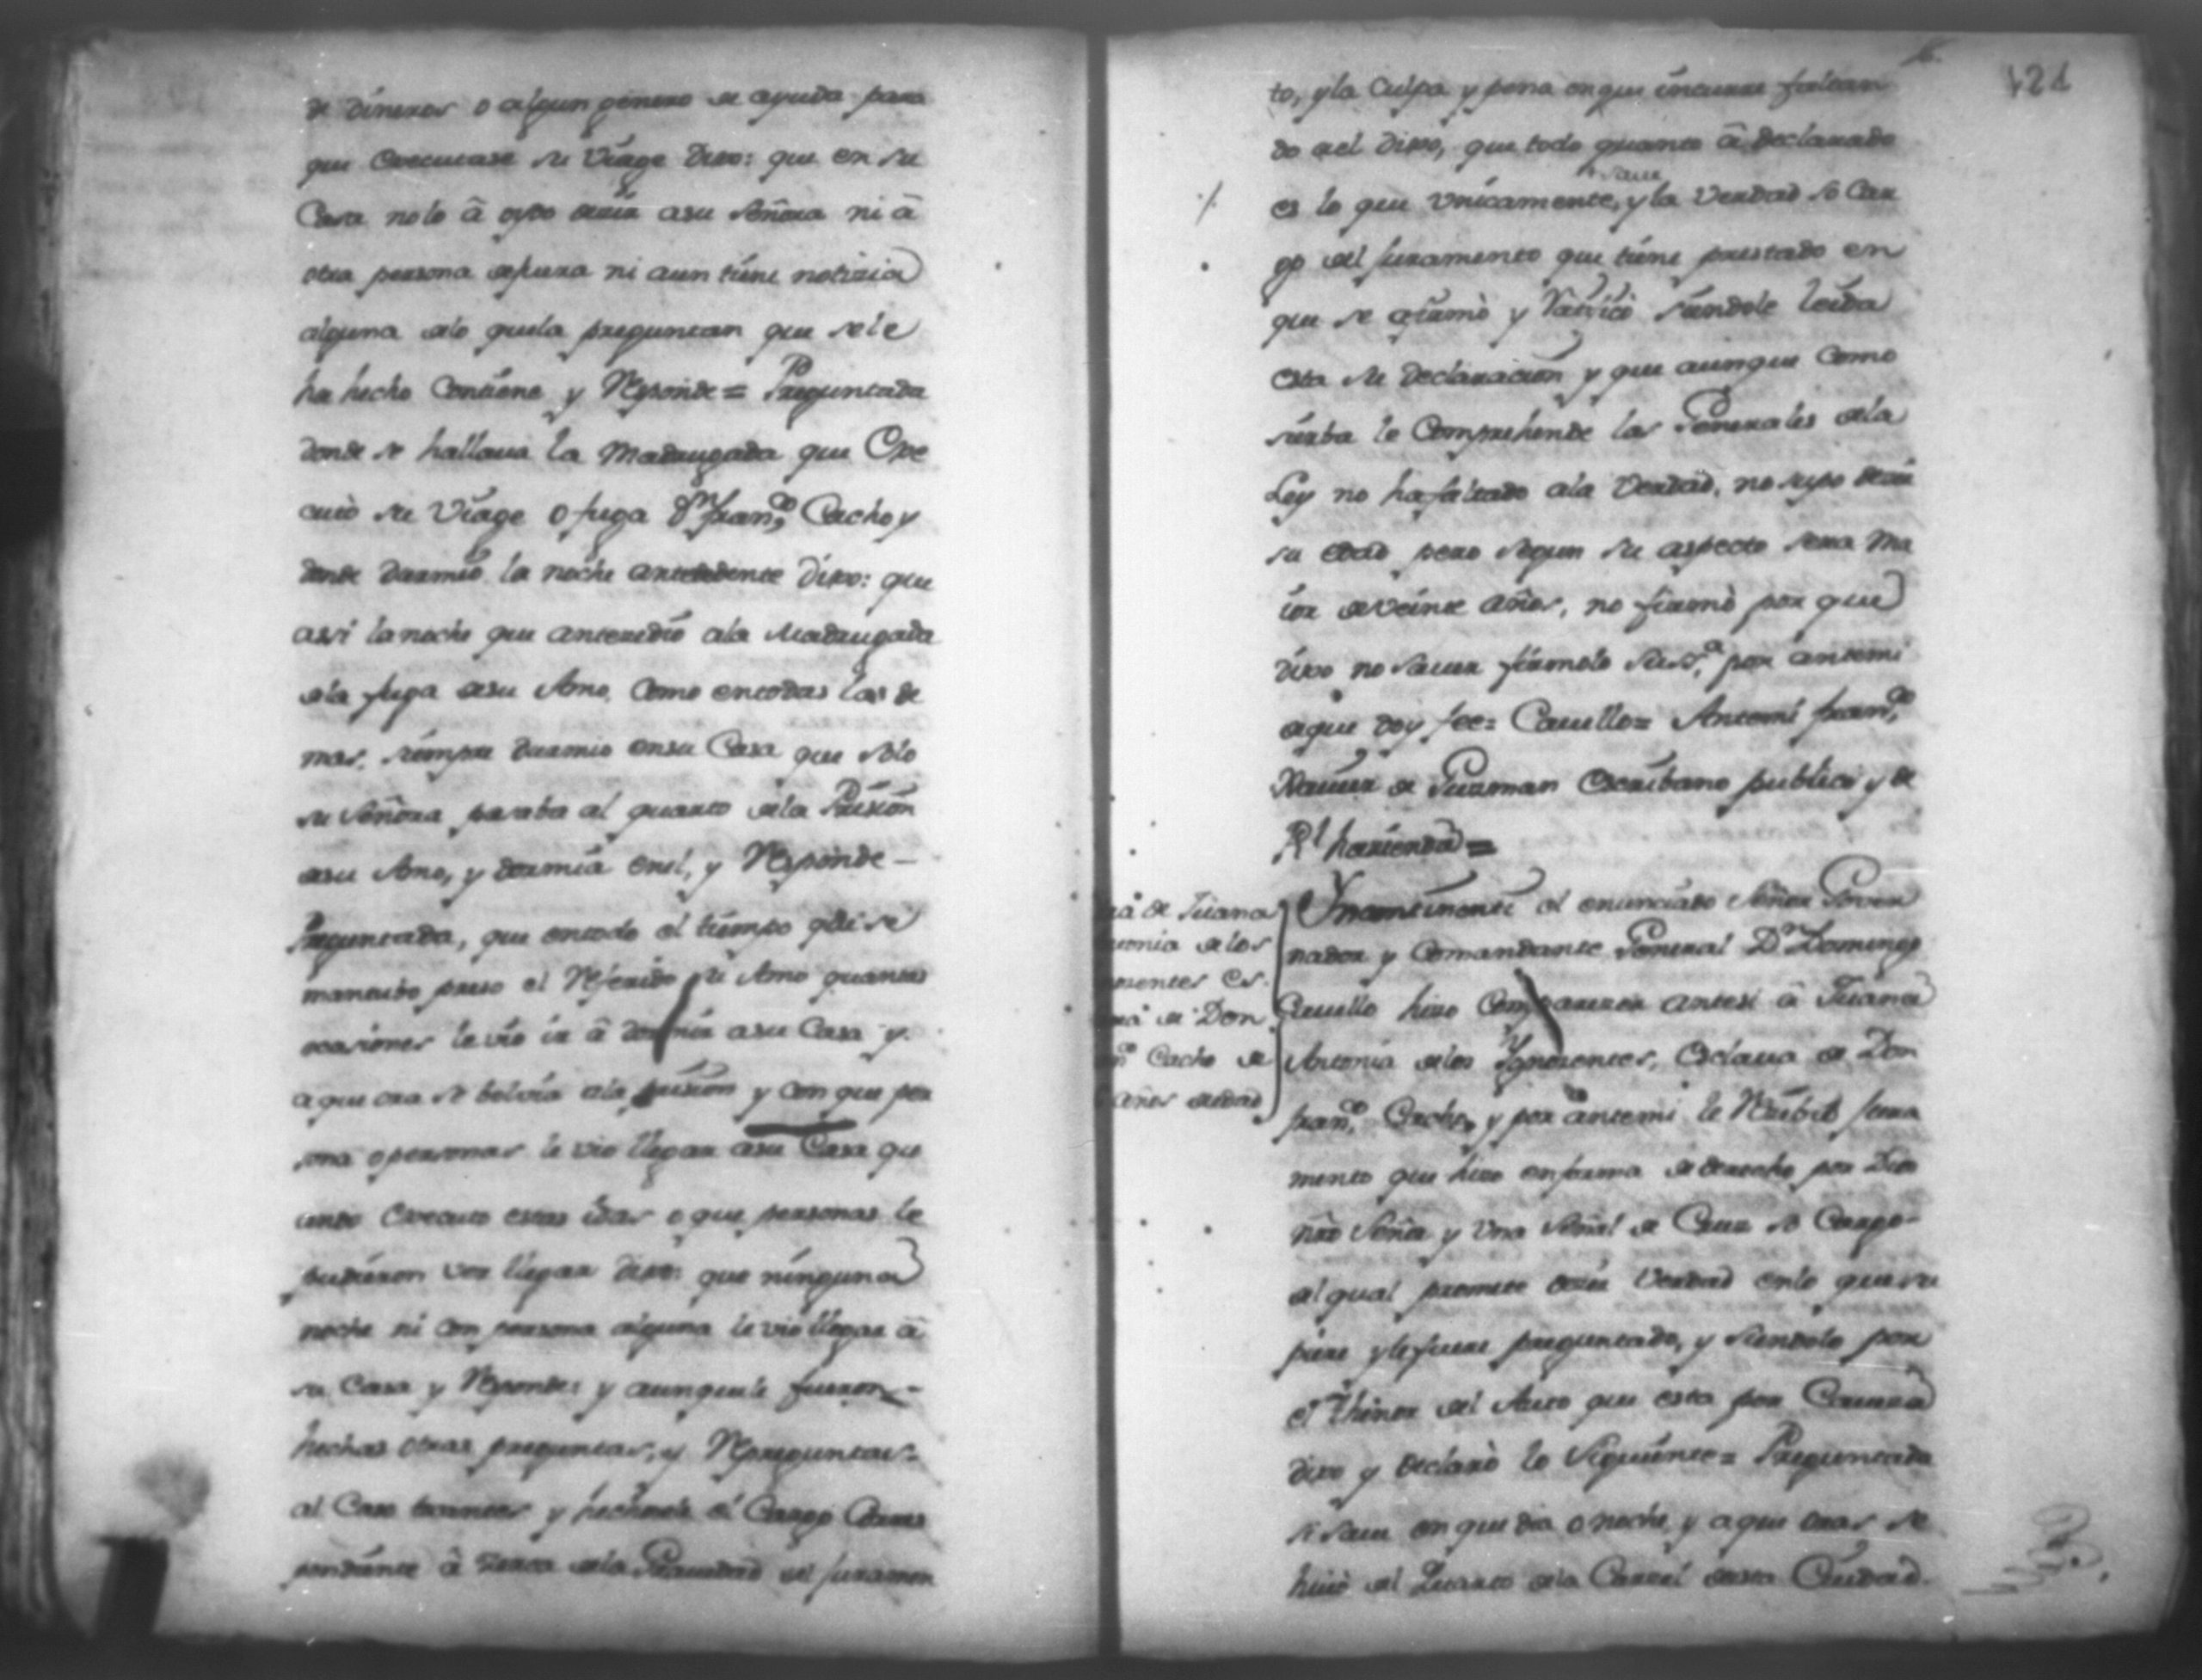 de dineros o algun genero de ayuda para
que executase su Viage Dixo: que en su
Casa no lo â oydo decir a su Señora ni â
otra persona de fuera ni aun tiene notizia
alguna de lo que la preguntan que se le
ha hecho Contiene y Responde = Preguntada
donde se hallaua la Madrugada que Exe
cutò su Viage o fuga Dn. Franco. Cacho y
donde Durmió la noche antecedente Dixo: que
asi la noche que antecedió a la Madrugada
de la fuga de su Amo, Como en todas las de
mas, siempre durmio en su Casa que solo
su Señora pasaba al quarto de la Prision
de su Amo, y dormia en el, y Responde –
Preguntada, que en todo el tiempo que se
mantubo preso el Referido su Amo quantas
ocasiones le vio ir â dormir a su Casa y
a que ora se bolvia a la prision y con que per
sona o personas le vio llegar a su Casa qu
ando Executo estas idas o que personas le
pudieron ver llegar dixo: que ninguna
noche ni con persona alguna le vio llegar â
su Casa y Responde: y aunque le fueron –
hechas otras preguntas, y Repreguntas
al Caso tocantes y hechole el Cargo Corres
pondiente â zerca de la Gravedad del juramen
121
to, y la Culpa y pena en que incurre faltan
do a el Dixo, que todo quanto â declarado
es lo que Vnicamente, saue y la Verdad so Car
go del juramento que tiene prestado en
que se afirmò y Ratificò siendole leida
esta su declaracion y que aunque Como
sierba le Comprehende las Generales de la
Ley no ha faltado a la Verdad, no supo decir
su edad pero segun su aspecto sera ma
ior de veinte años, no firmò por que
dixo no sauer firmolo su sa. por ante mi
de que doy fee= Cauello= Ante mi Franco.
Xauier de Guzman Escribano publico y de
Rl. hazienda =
Yncontinenti el enunciado Señor Gover
nador y Comandante General Dn. Domingo
Cauello hizo Comparezer ante si â Juana
Antonia de los Ygnozentes, Esclaua de Don
Franco. Cacho, y por ante mi le Recibió jura
mento que hizo en forma de derecho por Dios
nro Señor y Vna Señal de Cruz so Cargo
del qual promete decir Verdad en lo que su
piere y le fuere preguntado, y siendolo por
el Thenor del Auto que esta por Caueza
dixo y declarò lo Siguiente= Preguntada
si saue en que dia o noche y a que oras se
huiò del Quarto de la Carcel de esta Ciudad.
de Juana
tonia de los
nozentes Es.
de Don
Cacho de
años de edad